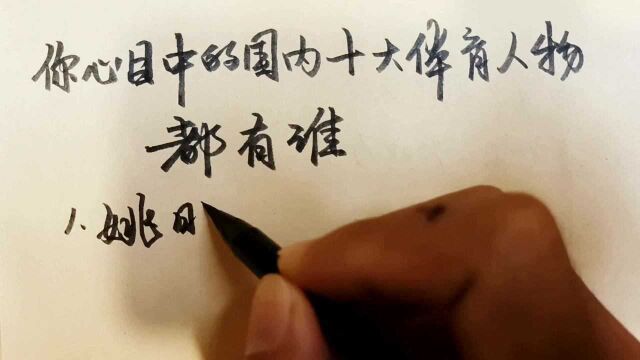 你心目中的国内十大体育人物
都有谁
1.姚日